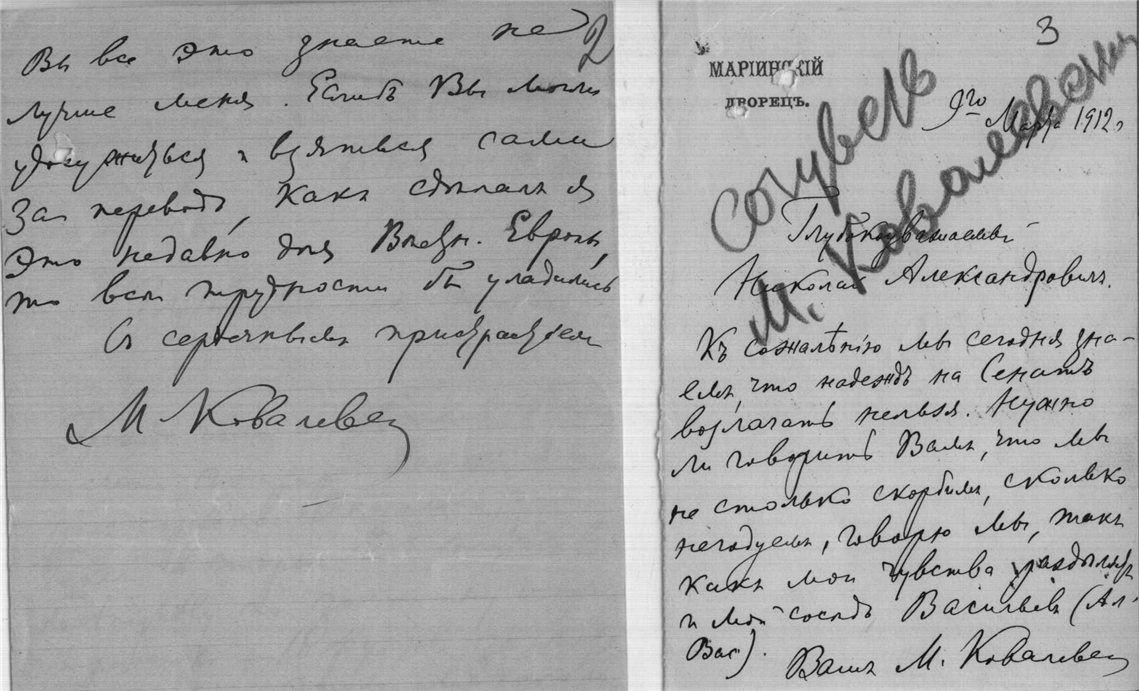 2
Вы все это знаете не
лучше меня. Еслибъ Вы могли
удосужиться и взяться сами
За переводъ, какъ сдѣлалъ я
Это недавно для Вѣстн. Европы,
то всѣ трудности бы уладились
Съ сердечнымъ
М Ковалевск
3
МАРІИНСКІЙ
ДВОРЕЦЪ.
9го Марта 1912 г
М. Ковалевск
Глубокоуважаемый
Николай Александровичъ.
Къ сожалѣнію мы сегодня зна-
емъ, что надеждъ на Сенатъ
возлагать нельзя. Нужно
ли говорить Вамъ, что мы
не столько скорбимъ, сколько
негодуемъ, говорю мы, такъ
какъ мои чувства раздѣляетъ
и мой сосѣдъ Васильевъ (Ал.
Вас).
Вашъ М. Ковалевск